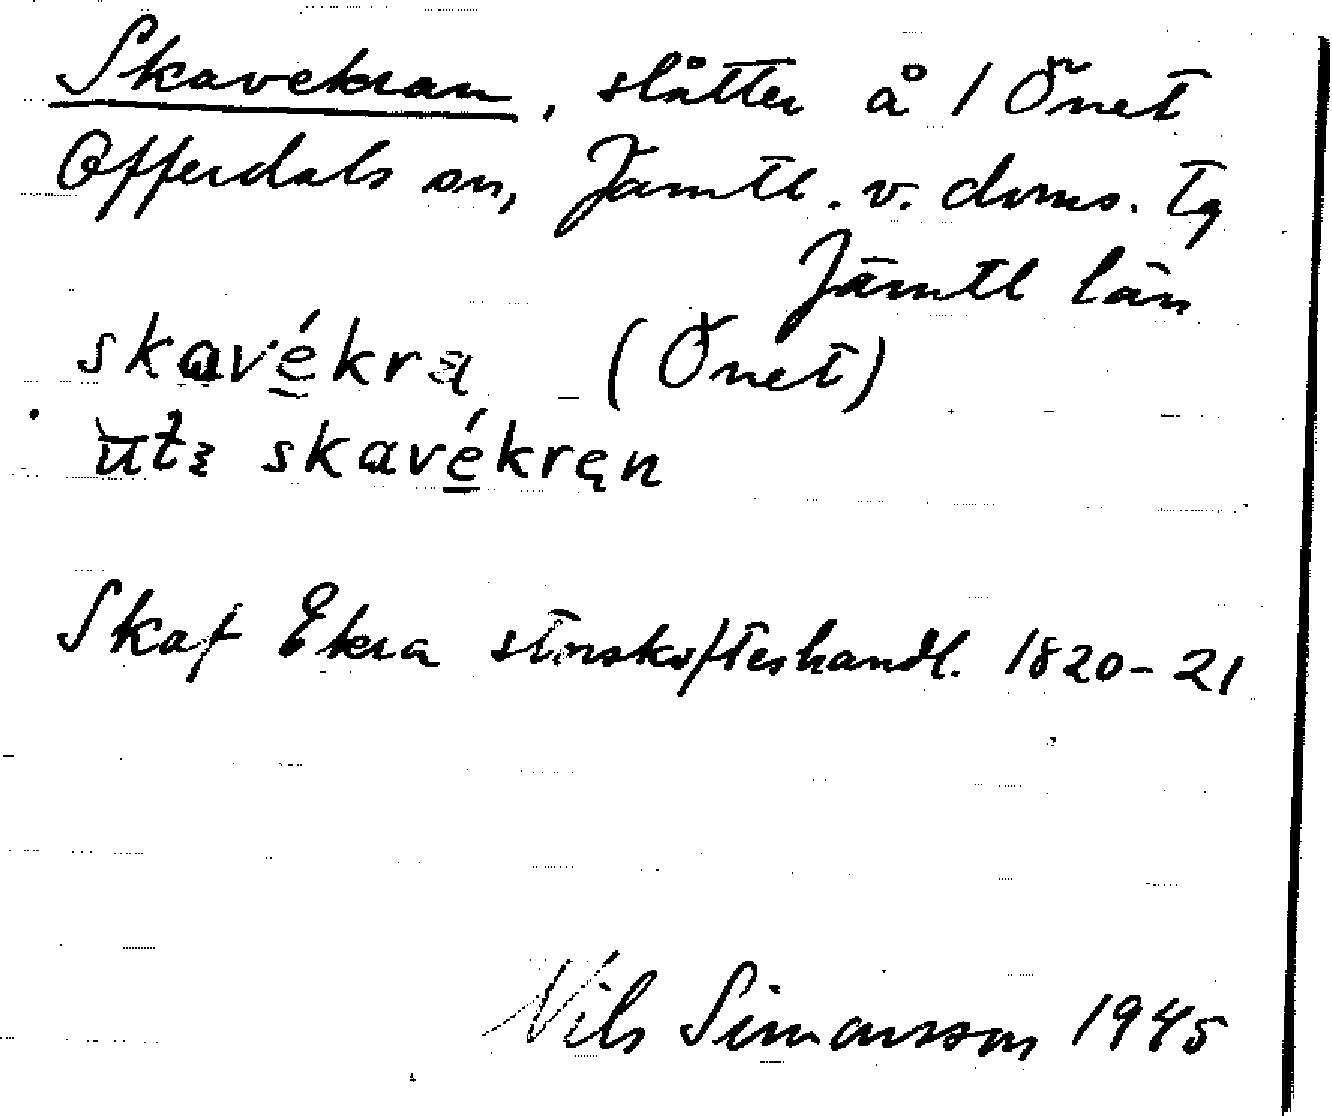 Skavekran, slåtter å 1 Önet
Offerdals sn, Jämtl. v. doms. tg
Jämtl län
skavékra (Önet)
utʒ skavékręn
Skaf Ekra storskifteshandl. 1820-21
Nils Simonsson 1945